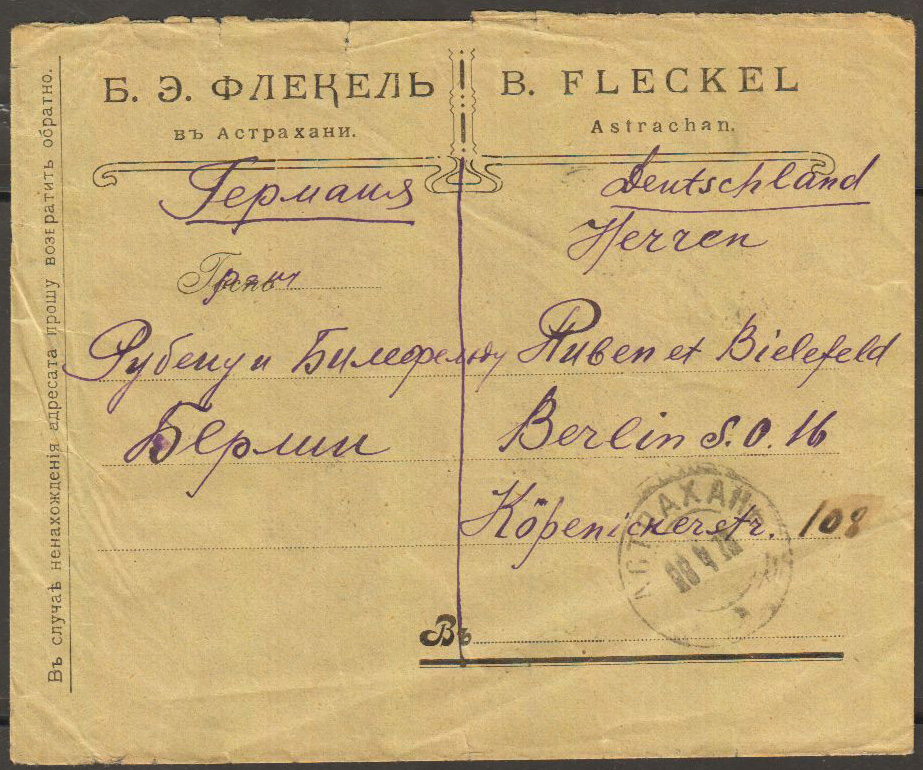 Б. Э. ФЛЕКЕЛЬ
въ Астрахани.
B. FLECKEL
Astrachan.
Въ случаѣ ненахожденія адресата прошу возвратить обратно.
Германия
Рубену и Билефельду
Берлин
Deutschland
Herren
Ruben et Bielefeld
Berlin S.O. 16
Köpenickerstr. 108
Въ
АСТРАХАНЬ